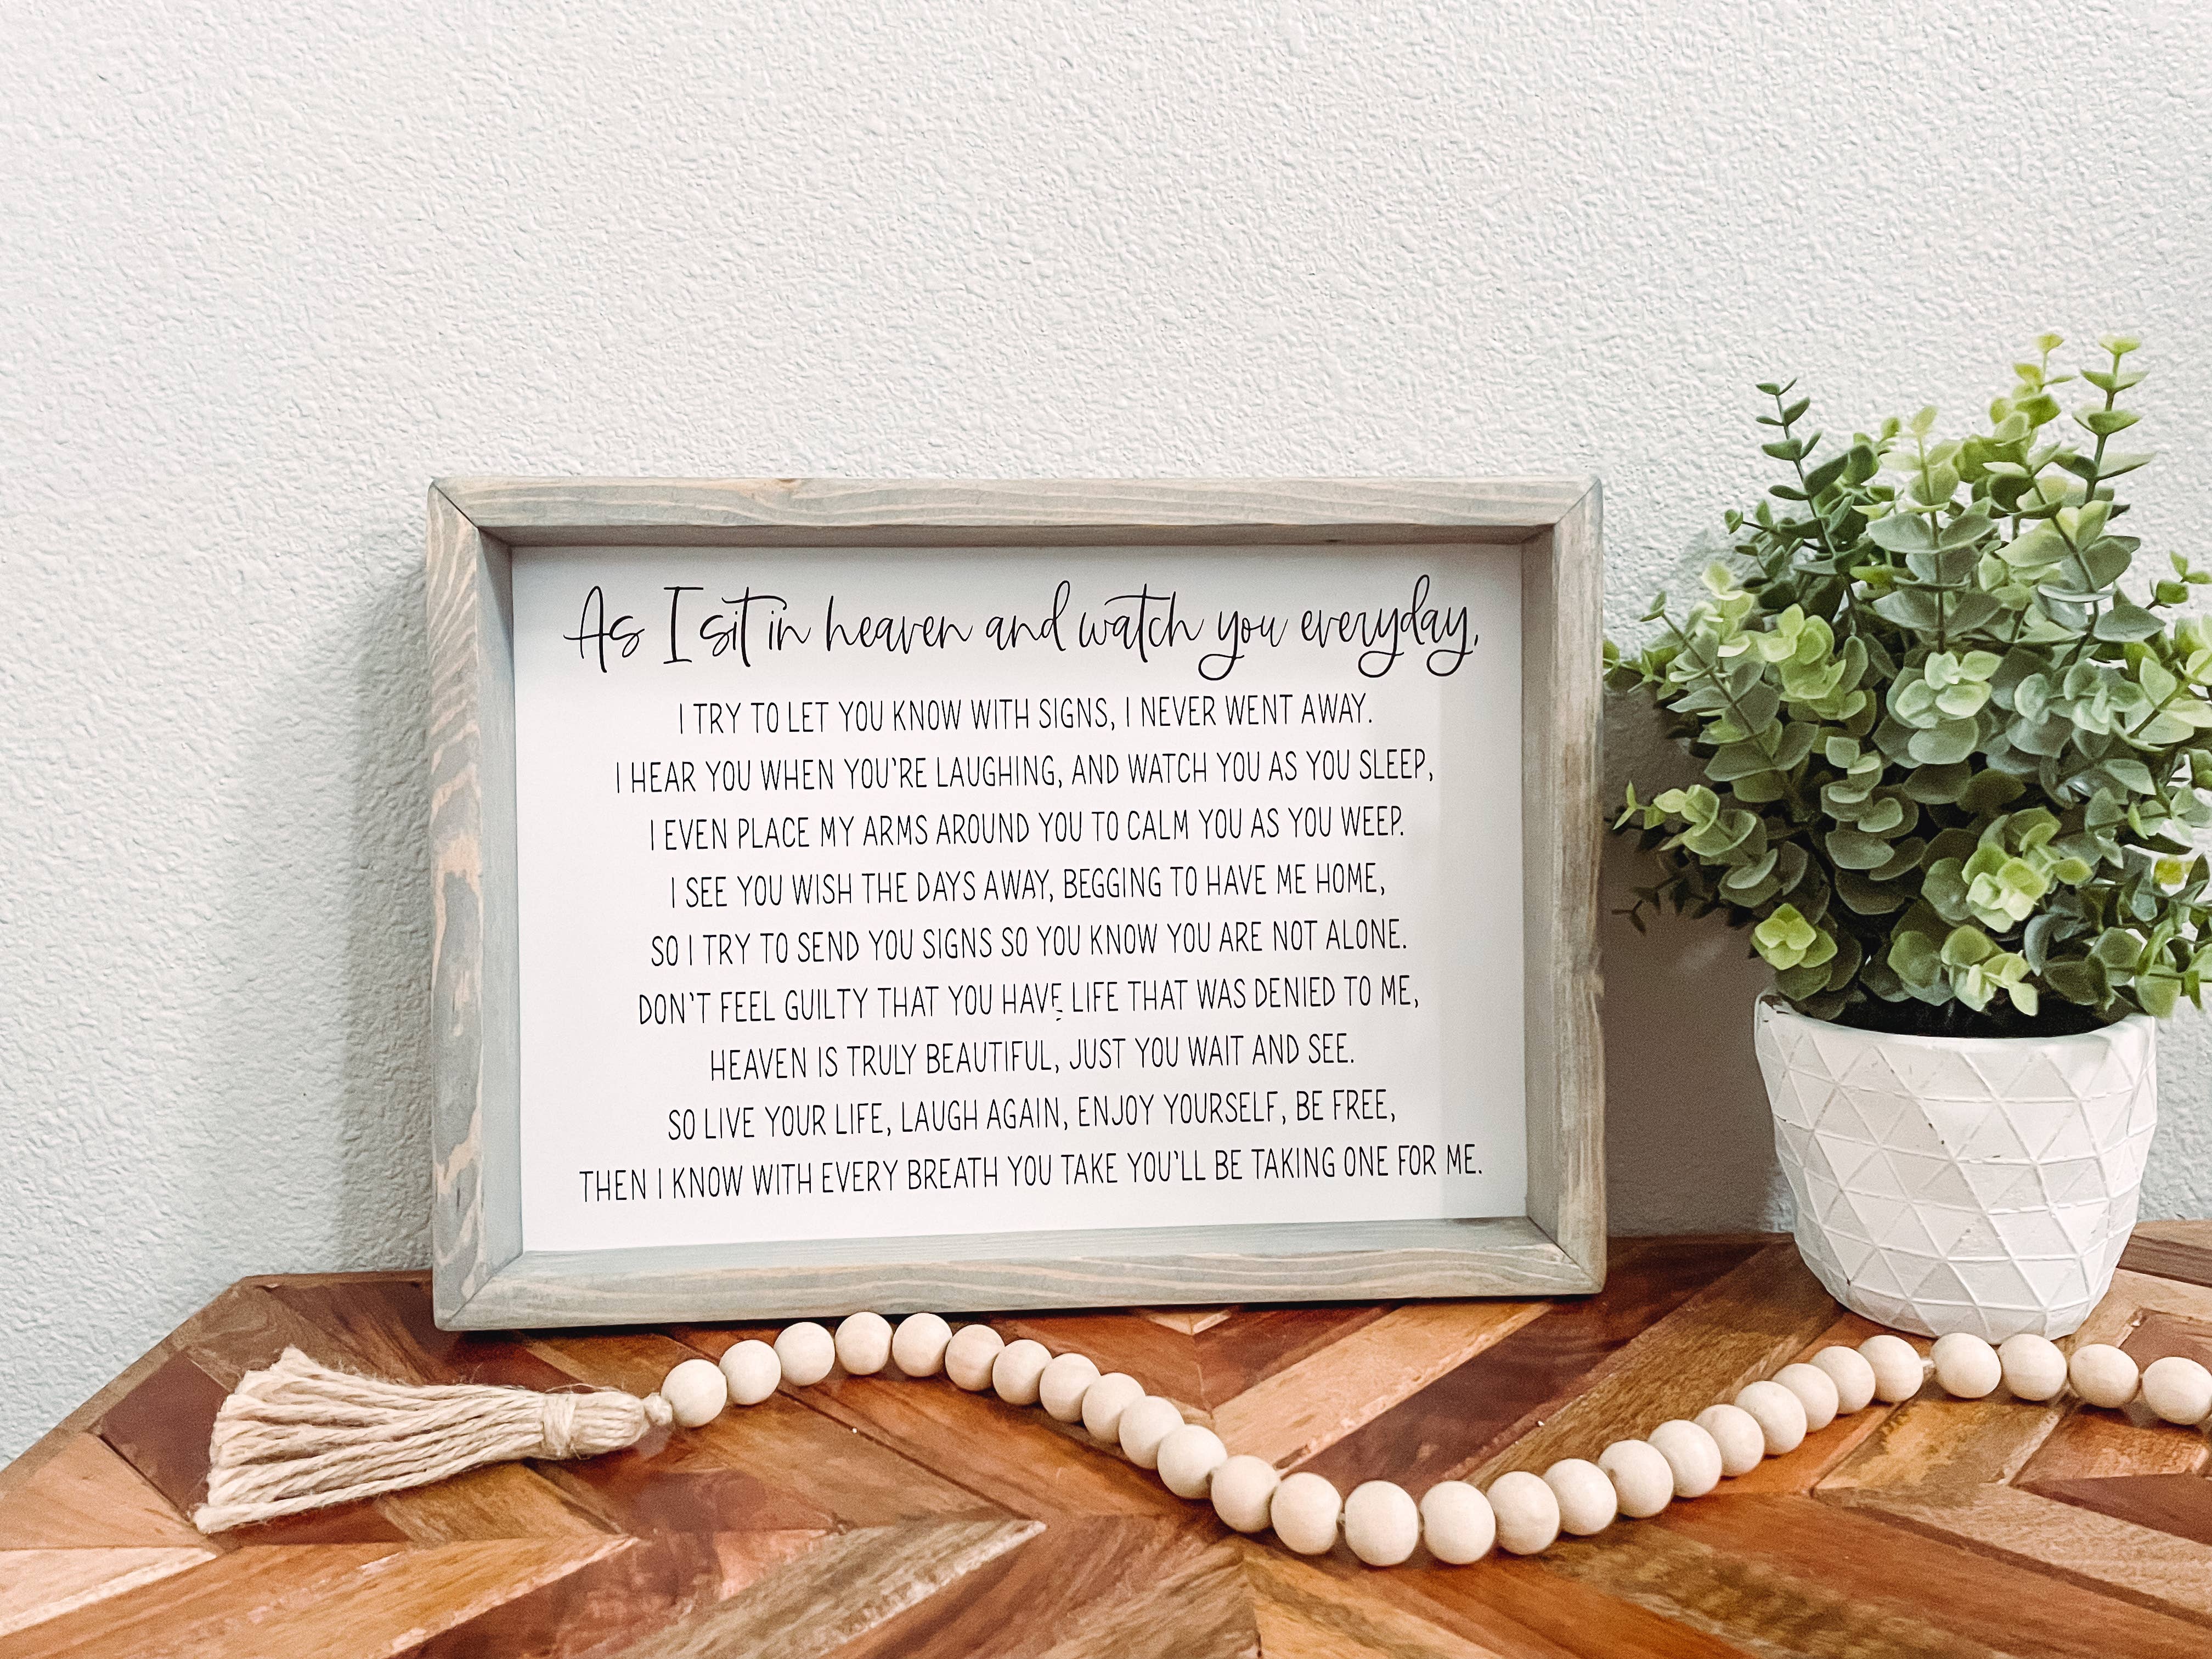 As I sit in heaven and watch you everyday,
I TRY TO LET YOU KNOW WITH SIGNS, I NEVER WENT AWAY.
I HEAR YOU WHEN YOU'RE LAUGHING, AND WATCH YOU AS YOU SLEEP,
I EVEN PLACE MY ARMS AROUND YOU TO CALM YOU AS YOU WEEP.
I SEE YOU WISH THE DAYS AWAY, BEGGING TO HAVE ME HOME,
SO I TRY TO SEND YOU SIGNS SO YOU KNOW YOU ARE NOT ALONE.
DON'T FEEL GUILTY THAT YOU HAVE LIFE THAT WAS DENIED TO ME,
HEAVEN IS TRULY BEAUTIFUL, JUST YOU WAIT AND SEE.
SO LIVE YOUR LIFE, LAUGH AGAIN, ENJOY YOURSELF, BE FREE,
THEN I KNOW WITH EVERY BREATH YOU TAKE YOU'LL BE TAKING ONE FOR ME.